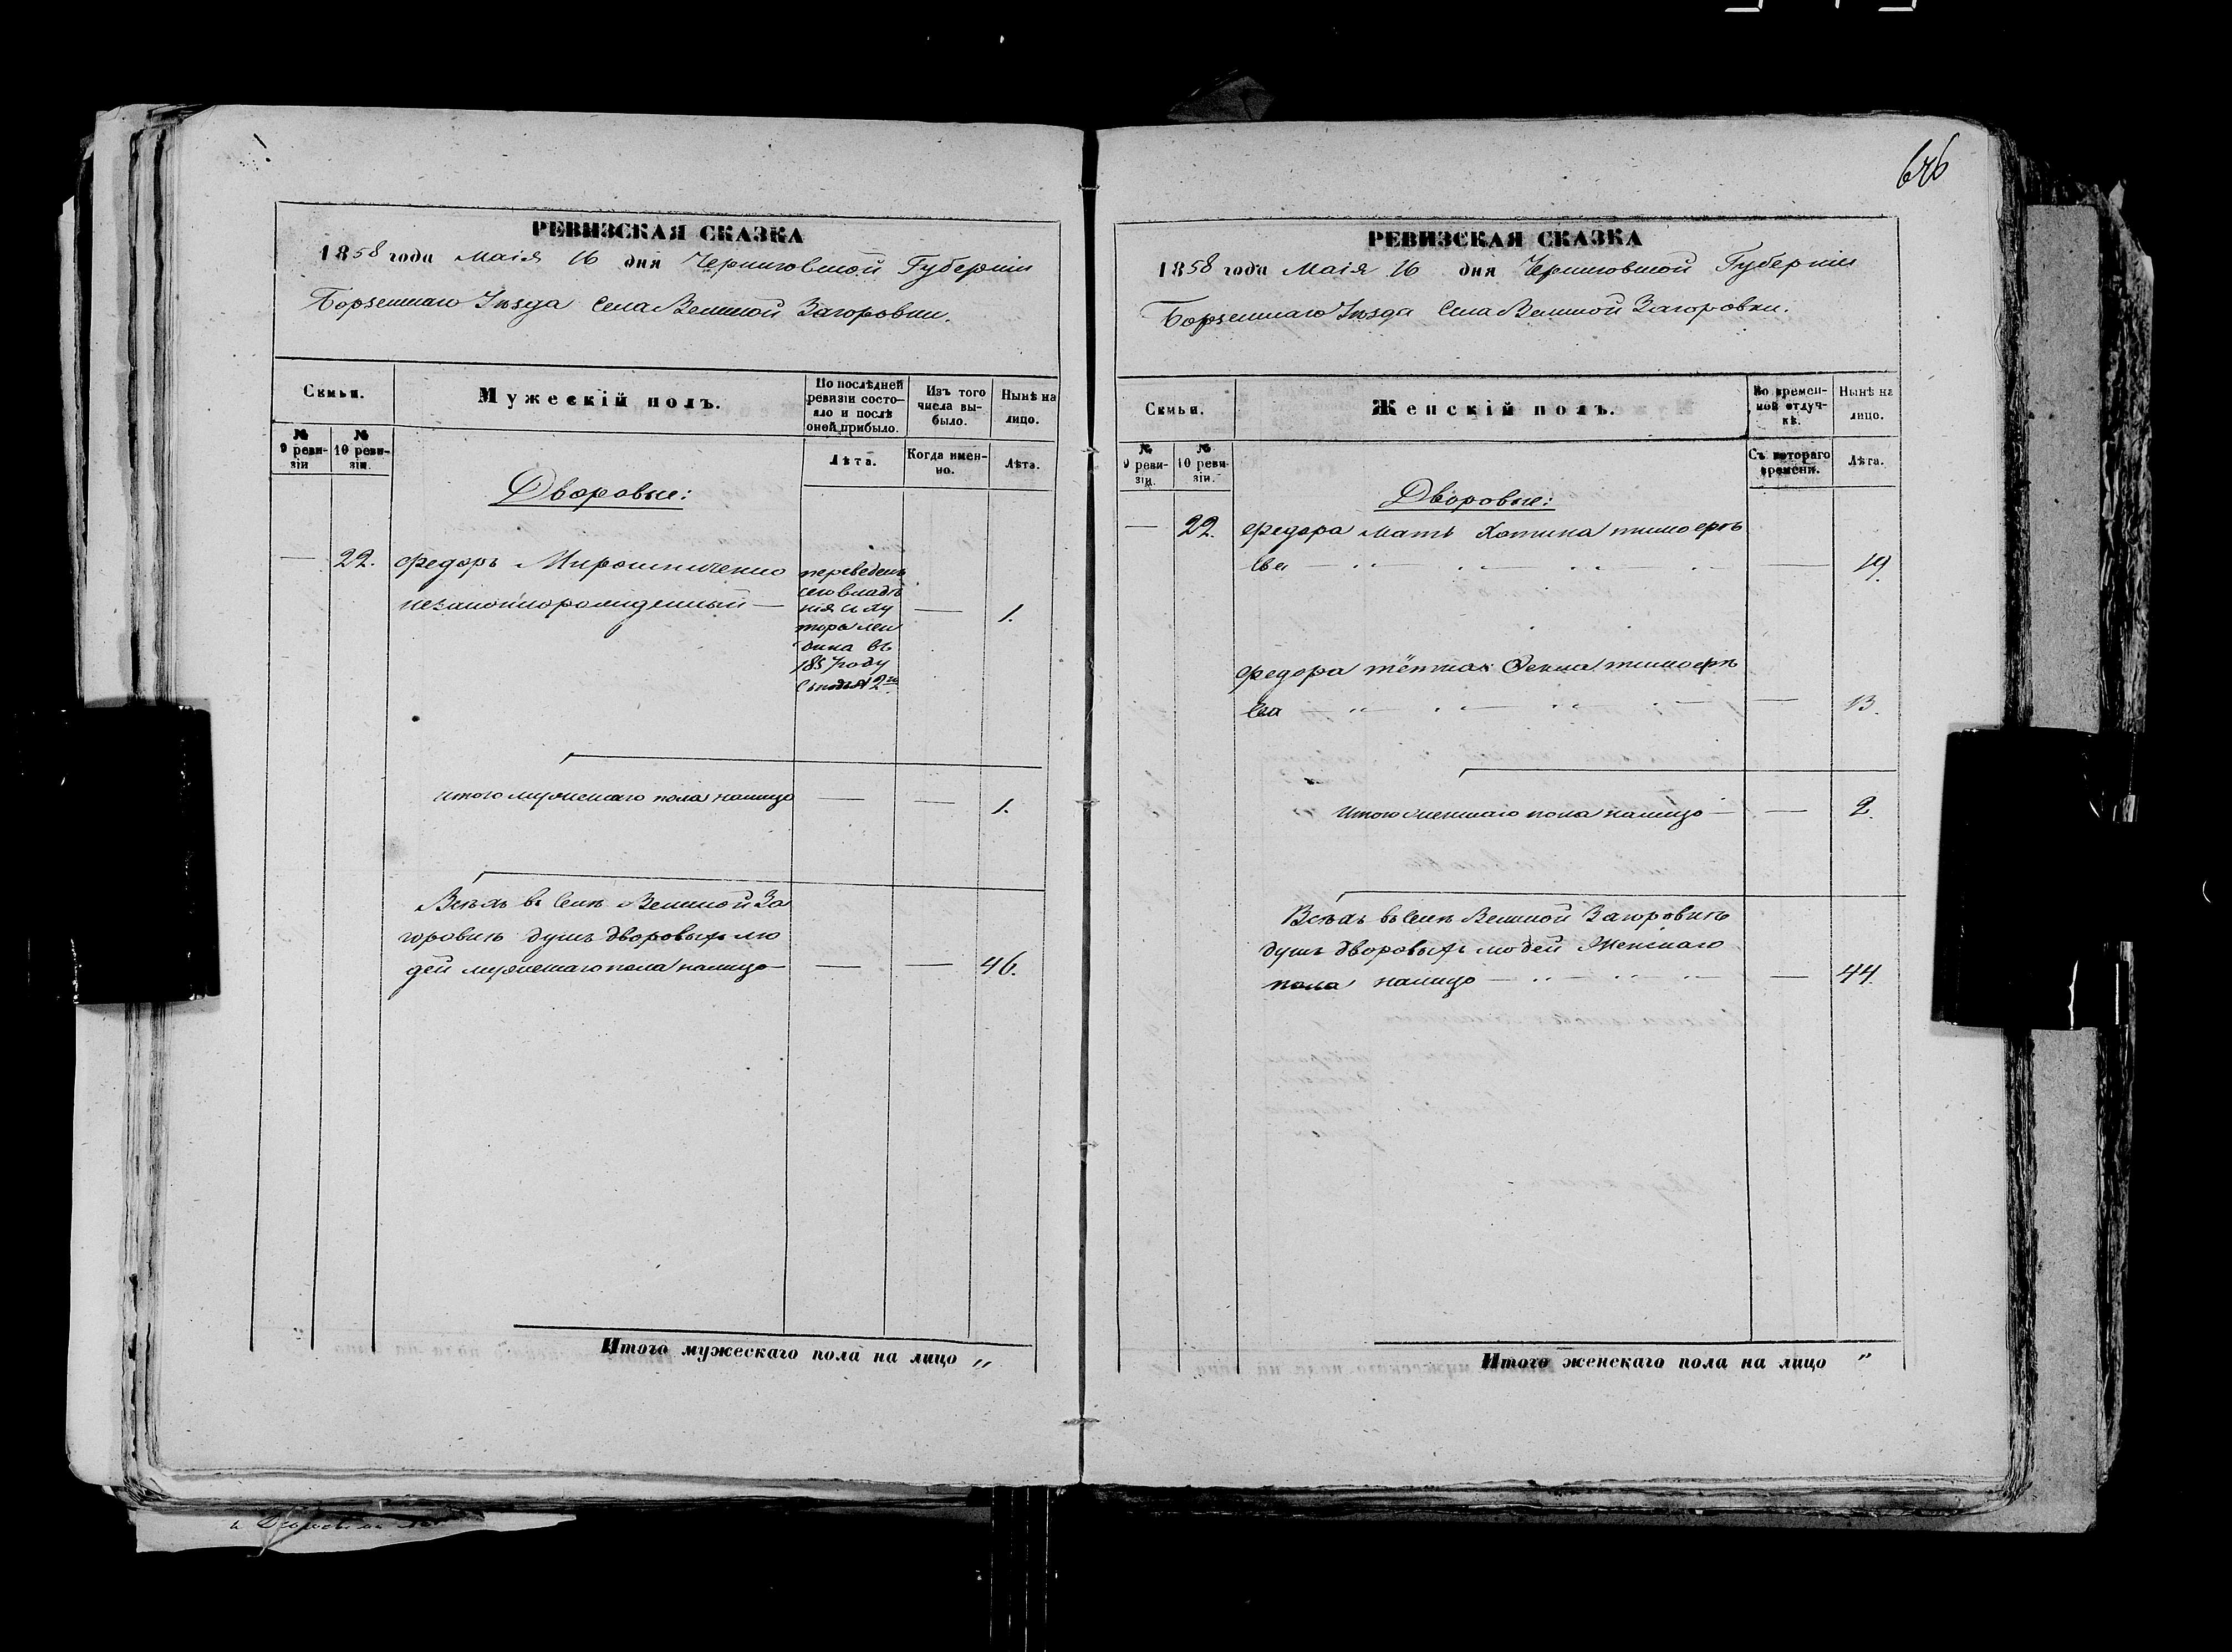 РЕВИЗСКАЯ СКАЗКА
1858 года Маія 16 дня Черниговской Губерніи
Борзенскаго Уѣзда Села Великой Загоровки.
Семьи.
Мужескій полъ.
По послѣдней ревизіи состояло и послѣ оной прибыло.
Изъ того числа выбыло.
Нынѣ на лицо.
№ 9 ревизіи
№ 10 ревизіи.
Лѣта.
Когда именно.
Лѣта.
Дворовые:
— 22. Федоръ Мирошниченко
незаконнорожденный — — 1.
переведенъ
сего владѣ
нія и ху
тора
въ
1857 году
Итого мужескаго пола налицо — — 1.
Всѣхъ въ Селѣ Великой За
горовкѣ душъ дворовыхъ лю
дей мужескаго пола налицо — — — 46.
Итого мужескаго пола на лицо „
676
РЕВИЗСКАЯ СКАЗКА
1858 года Маія 16 дня Черниговской Губерніи
Борзенскаго Уѣзда Села Великой Загоровки.
Семьи.
Женскій полъ.
Во временной отлучкѣ.
Нынѣ на лицо.
№ 9 ревизіи.
№ 10 ревизіи.
Съ котораго времени.
Лѣта.
Дворовые:
— 22. Федора мать Хотина тимофѣ
ева — — 19.
Федора тётка Фекла тимофѣ
ева — — 13.
Итого женскаго пола налицо — — 2.
Всѣхъ въ Селѣ Великой Загоровкѣ
душъ дворовыхъ людей Женскаго
пола налицо — — 44.
Итого женскаго пола на лицо „